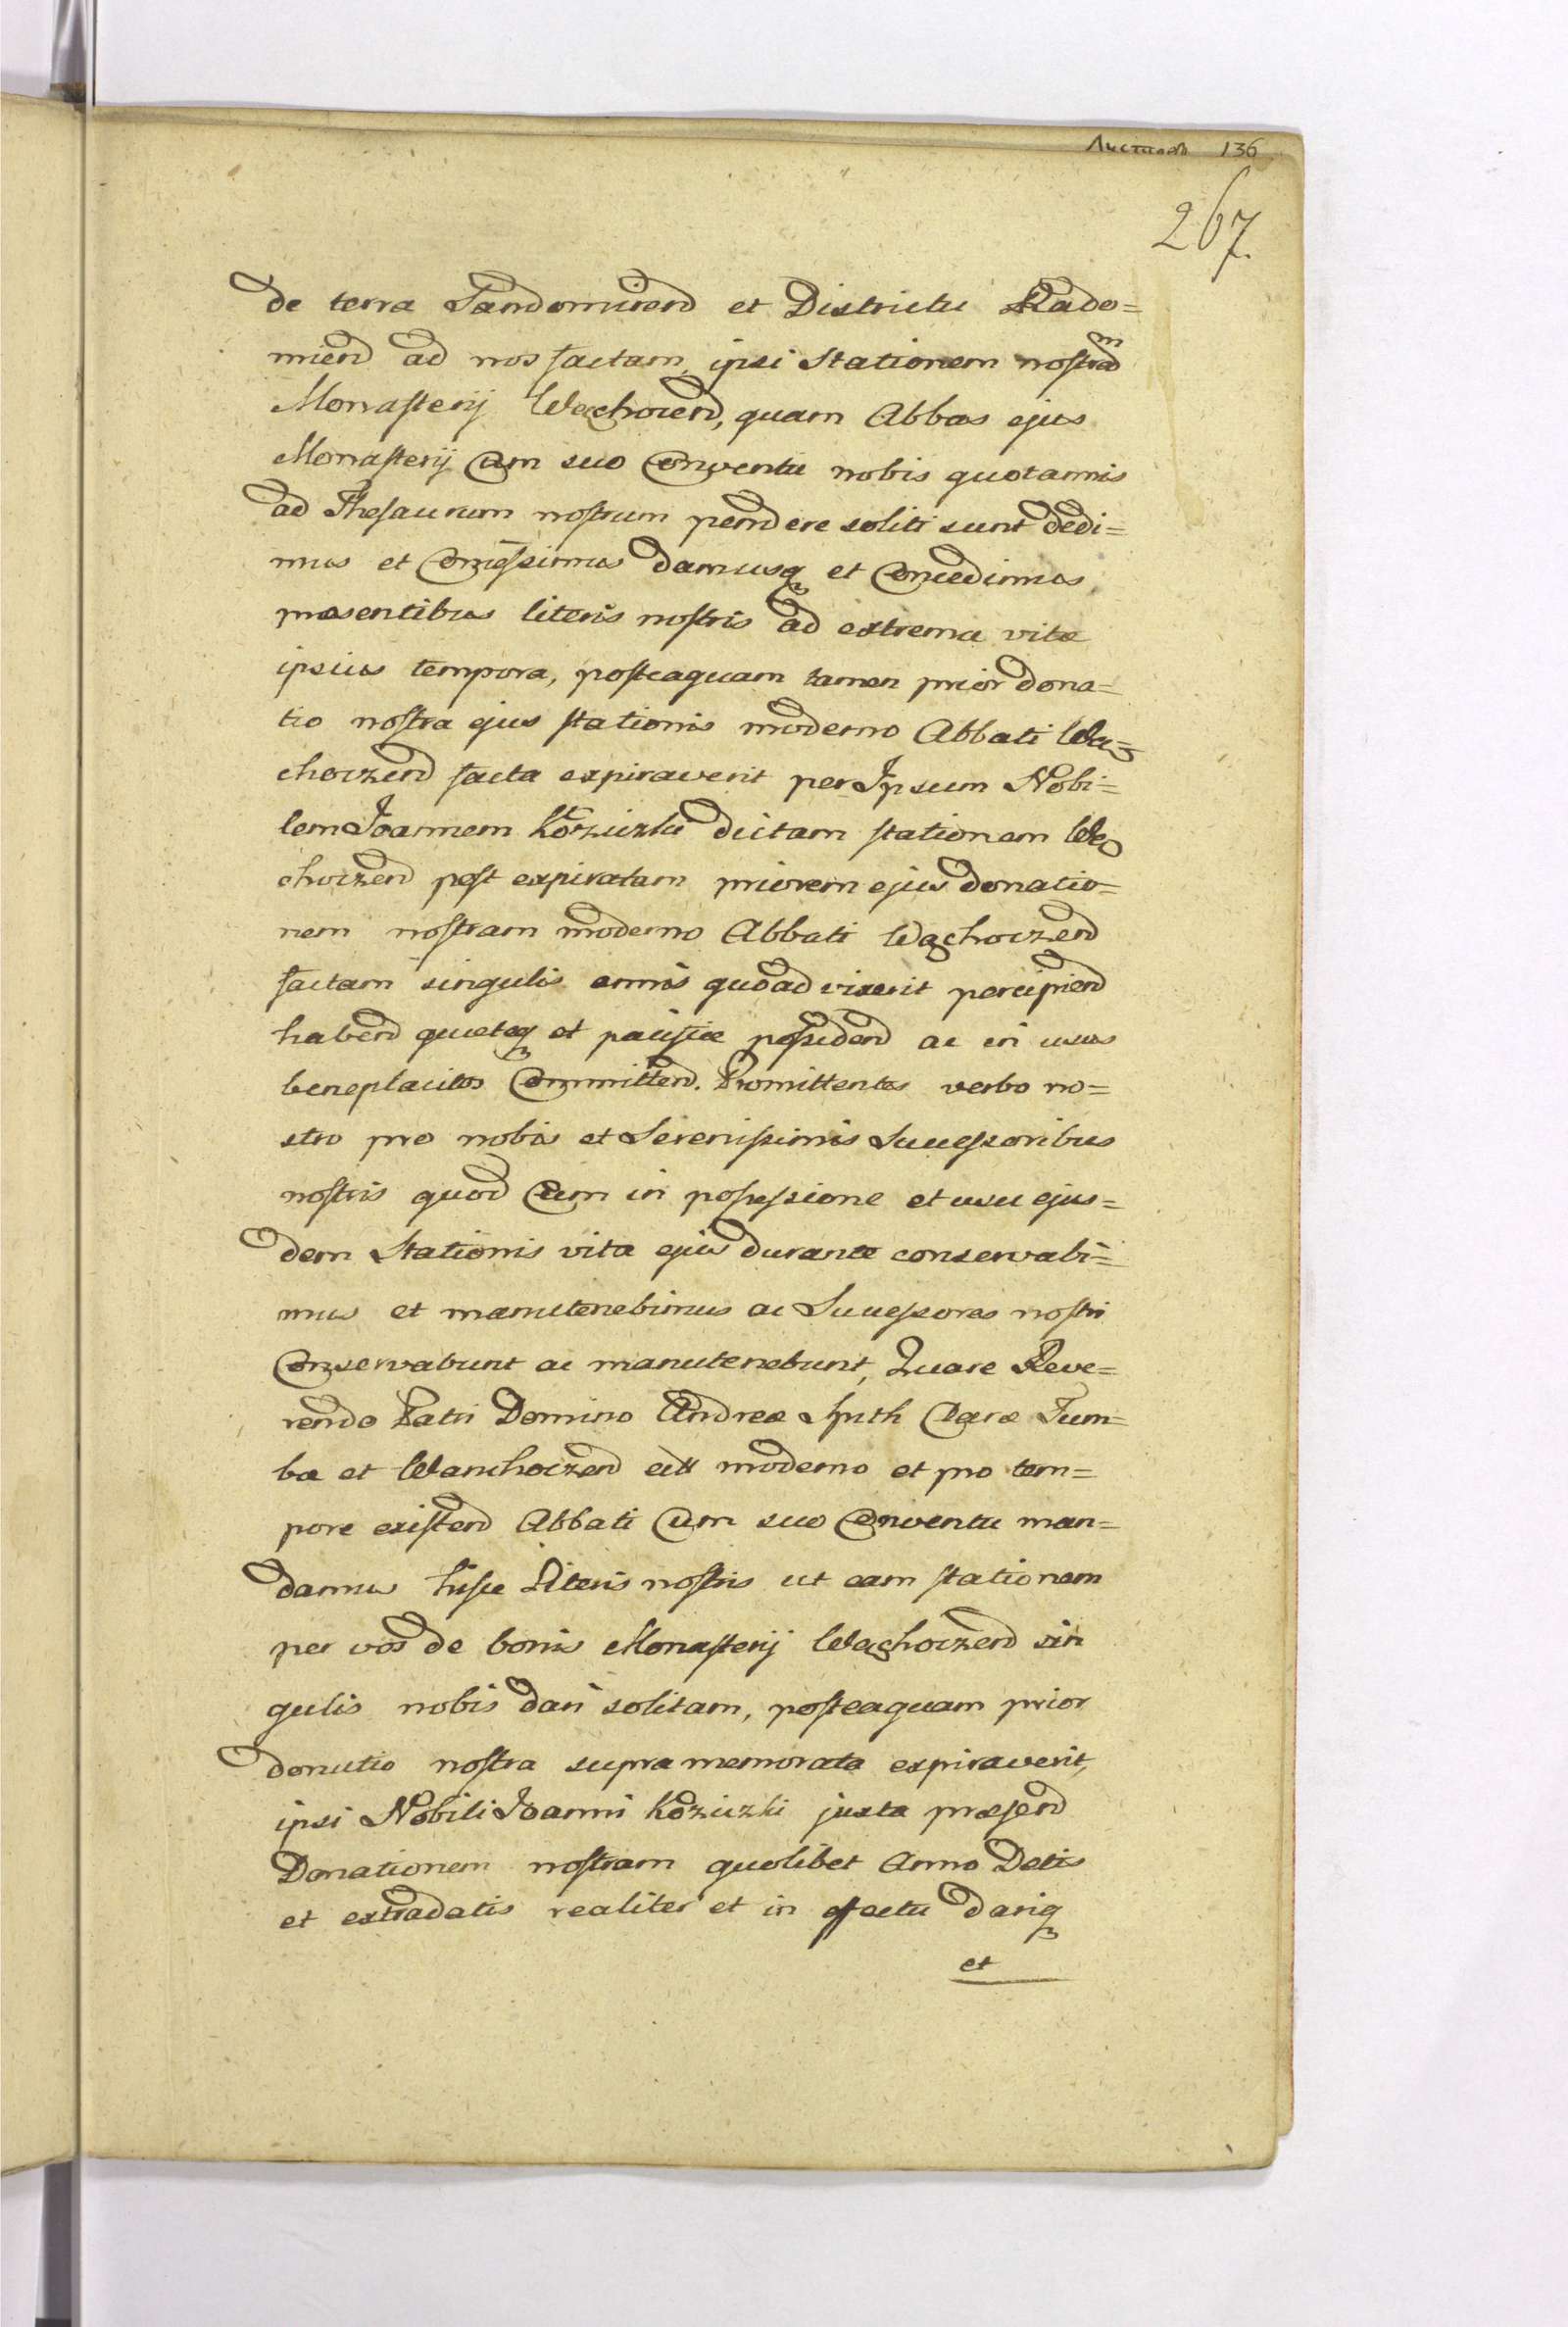 Листовъ 136
267.
de terra Sandomirend et Districtu Rado=
miend ad nos factam, ipsi Stationem nostram
Monasterij Wąchocend, quam Abbas ejus
Monasterij cum suo Conventu nobis quotannis
ad Thesaurum nostrum pendere soliti sunt dedi=
mus et Concessimus damusq et Concedimus
præsentibus literis nostris ad extrema vitæ
ipsius tempora, posteaquam tamen prior dona=
tio nostra ejus stationis moderno Abbati Wą=
choczend facta expiraverit per Ipsum Nobi=
lem Joannem Kozuzki dictam stationem Wą
choczend post expiratam priorem ejus donatio=
nem nostram moderno Abbati Wąchoczend
factam singulis annis quoad vixerit percipiend
habend quieteq et pacifice possidend ac in usus
beneplacitos Committend. Promittentes verbo no=
stro pro nobis et Serenissimis Successoribus
nostris quod Eum in possessione et usu ejus=
dem Stationis vita ejus durante conservabi=
mus et manutenebimus ac Successores nostri
Conservabunt ac manutenebunt, Quare Reve=
rendo Patri Domino Andreæ Spith Claræ Tum=
bæ et Wanchoczend moderno et pro tem=
pore existend Abbati cum suo Conventu man=
damus hisce Literis nostris ut eam stationem
per vos de bonis Monasterij Wąchoczend sin
gulis nobis dari solitam, posteaquam prior
donatio nostra supra memorata expiraverit,
ipsi Nobili Joanni Kozuzki juxta præsend
Donationem nostram quolibet Anno Detis
et extradatis realiter et in effectu dariq
et